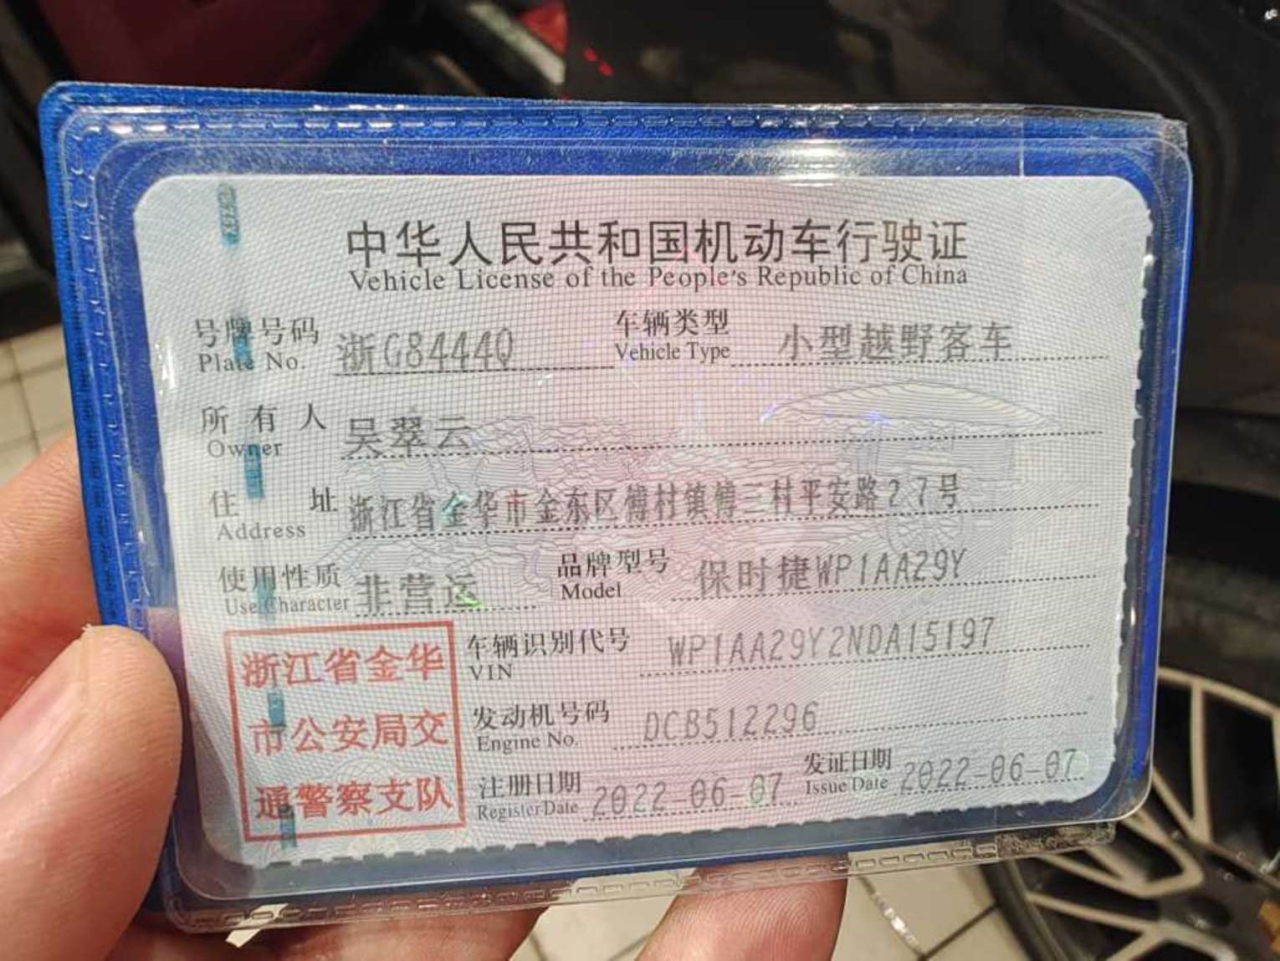 中华人民共和国机动车行驶证
Vehicle License of the People's Republic of China
号牌号码 浙G8444Q 车辆类型 小型越野客车
Plate No. Vehicle Type
所有人 吴翠云
Owner
住址 浙江省金华市金东区傅村镇傅三村平安路27号
Address
使用性质 非营运 品牌型号 保时捷WP1AA29Y
Use Character Model
车辆识别代号 WP1AA29Y2NDA15197
VIN
发动机号码 DCB512296
Engine No.
注册日期 2022-06-07 发证日期 2022-06-07
Register Date Issue Date
浙江省金华
市公安局交
通警察支队